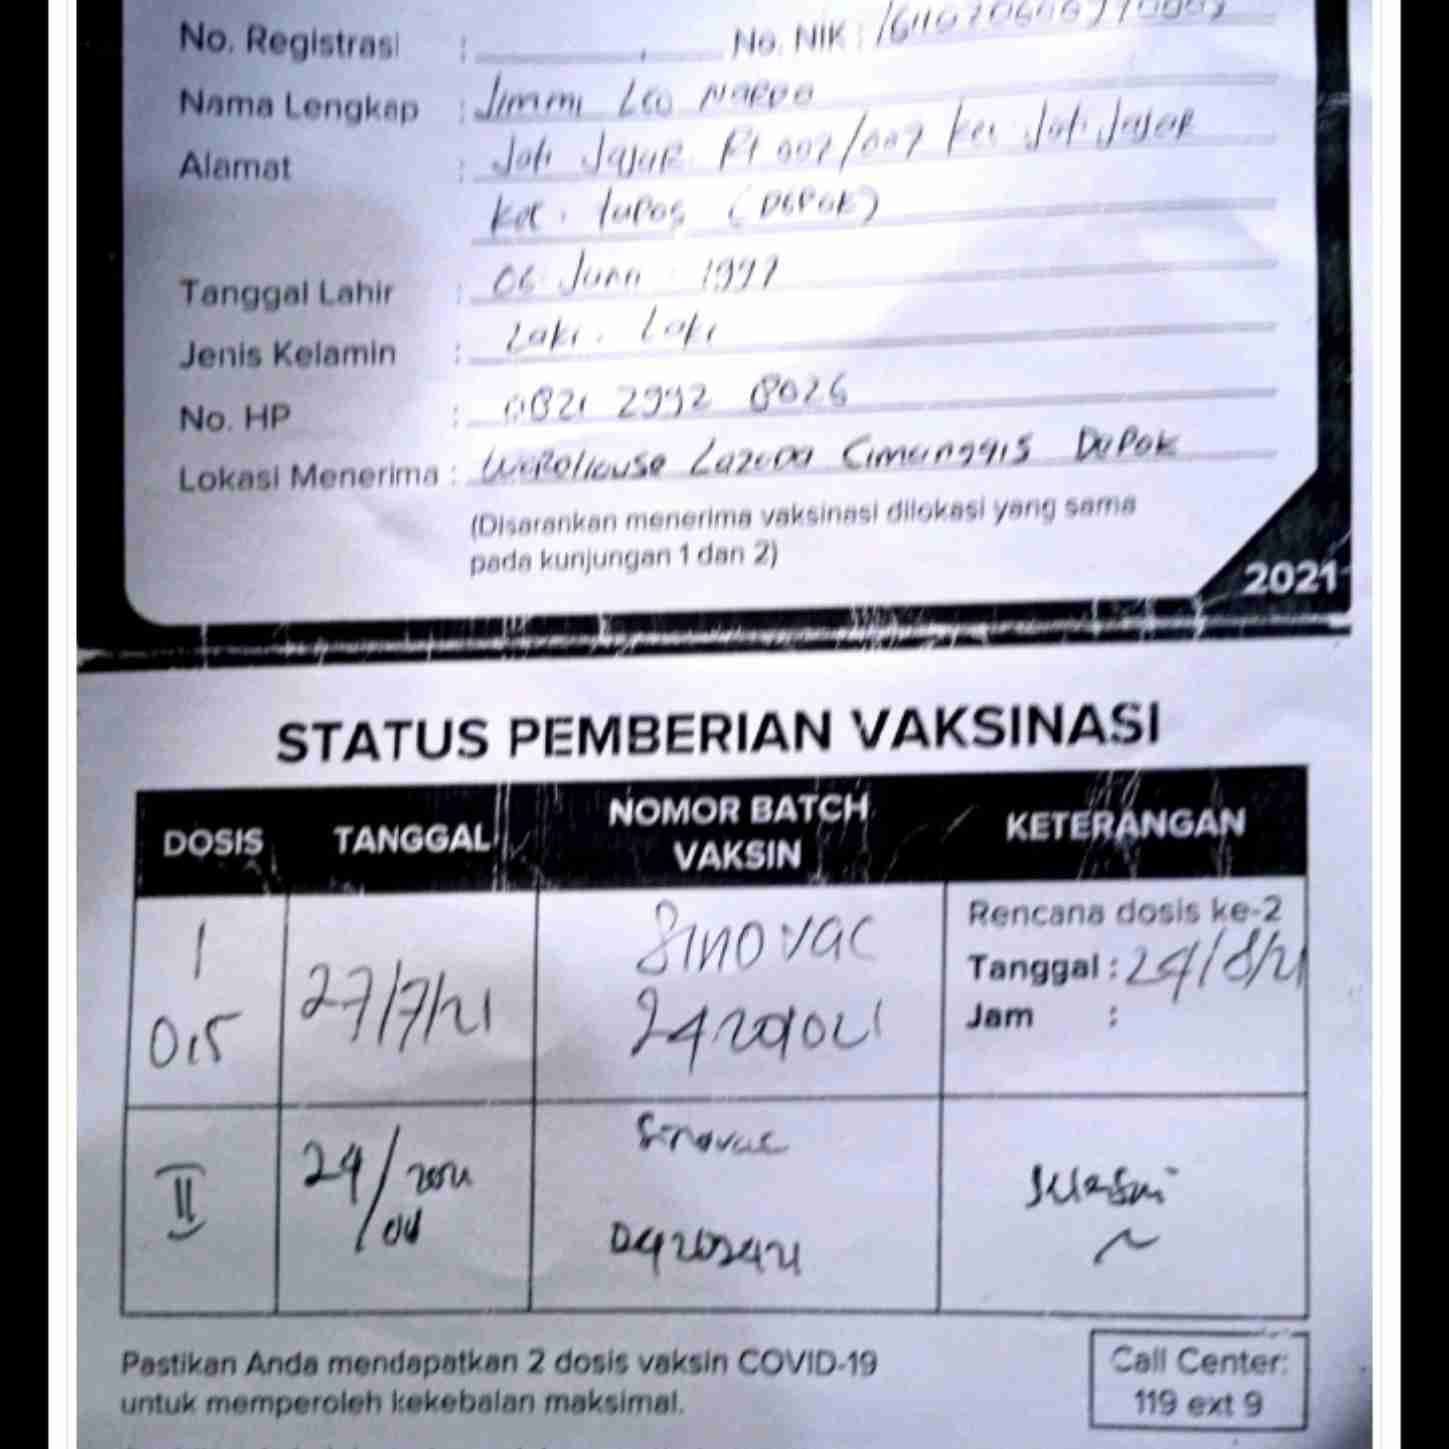 No. Registrasi : No. NIK :
Nama Lengkap : Jimmi Leo Nardo
Alamat : Jati Jajar Rt 007/007 kel Jati Jajar
kec. Tapos (DEPOK)
Tanggal Lahir : 06 Juni 1997
Jenis Kelamin : Laki. Laki
No. HP : 0821 2992 8026
Lokasi Menerima : Lazada Cimanggis Depok
(Disarankan menerima vaksinasi dilokasi yang sama
pada kunjungan 1 dan 2)
2021
STATUS PEMBERIAN VAKSINASI
DOSIS TANGGAL NOMOR BATCH VAKSIN KETERANGAN
1 0,5 27/7/21 Sinovac Rencana dosis ke-2
Tanggal : 24/8/21
Jam :
II 24/ Sinovac
Pastikan Anda mendapatkan 2 dosis vaksin COVID-19
untuk memperoleh kekebalan maksimal.
Call Center:
119 ext 9